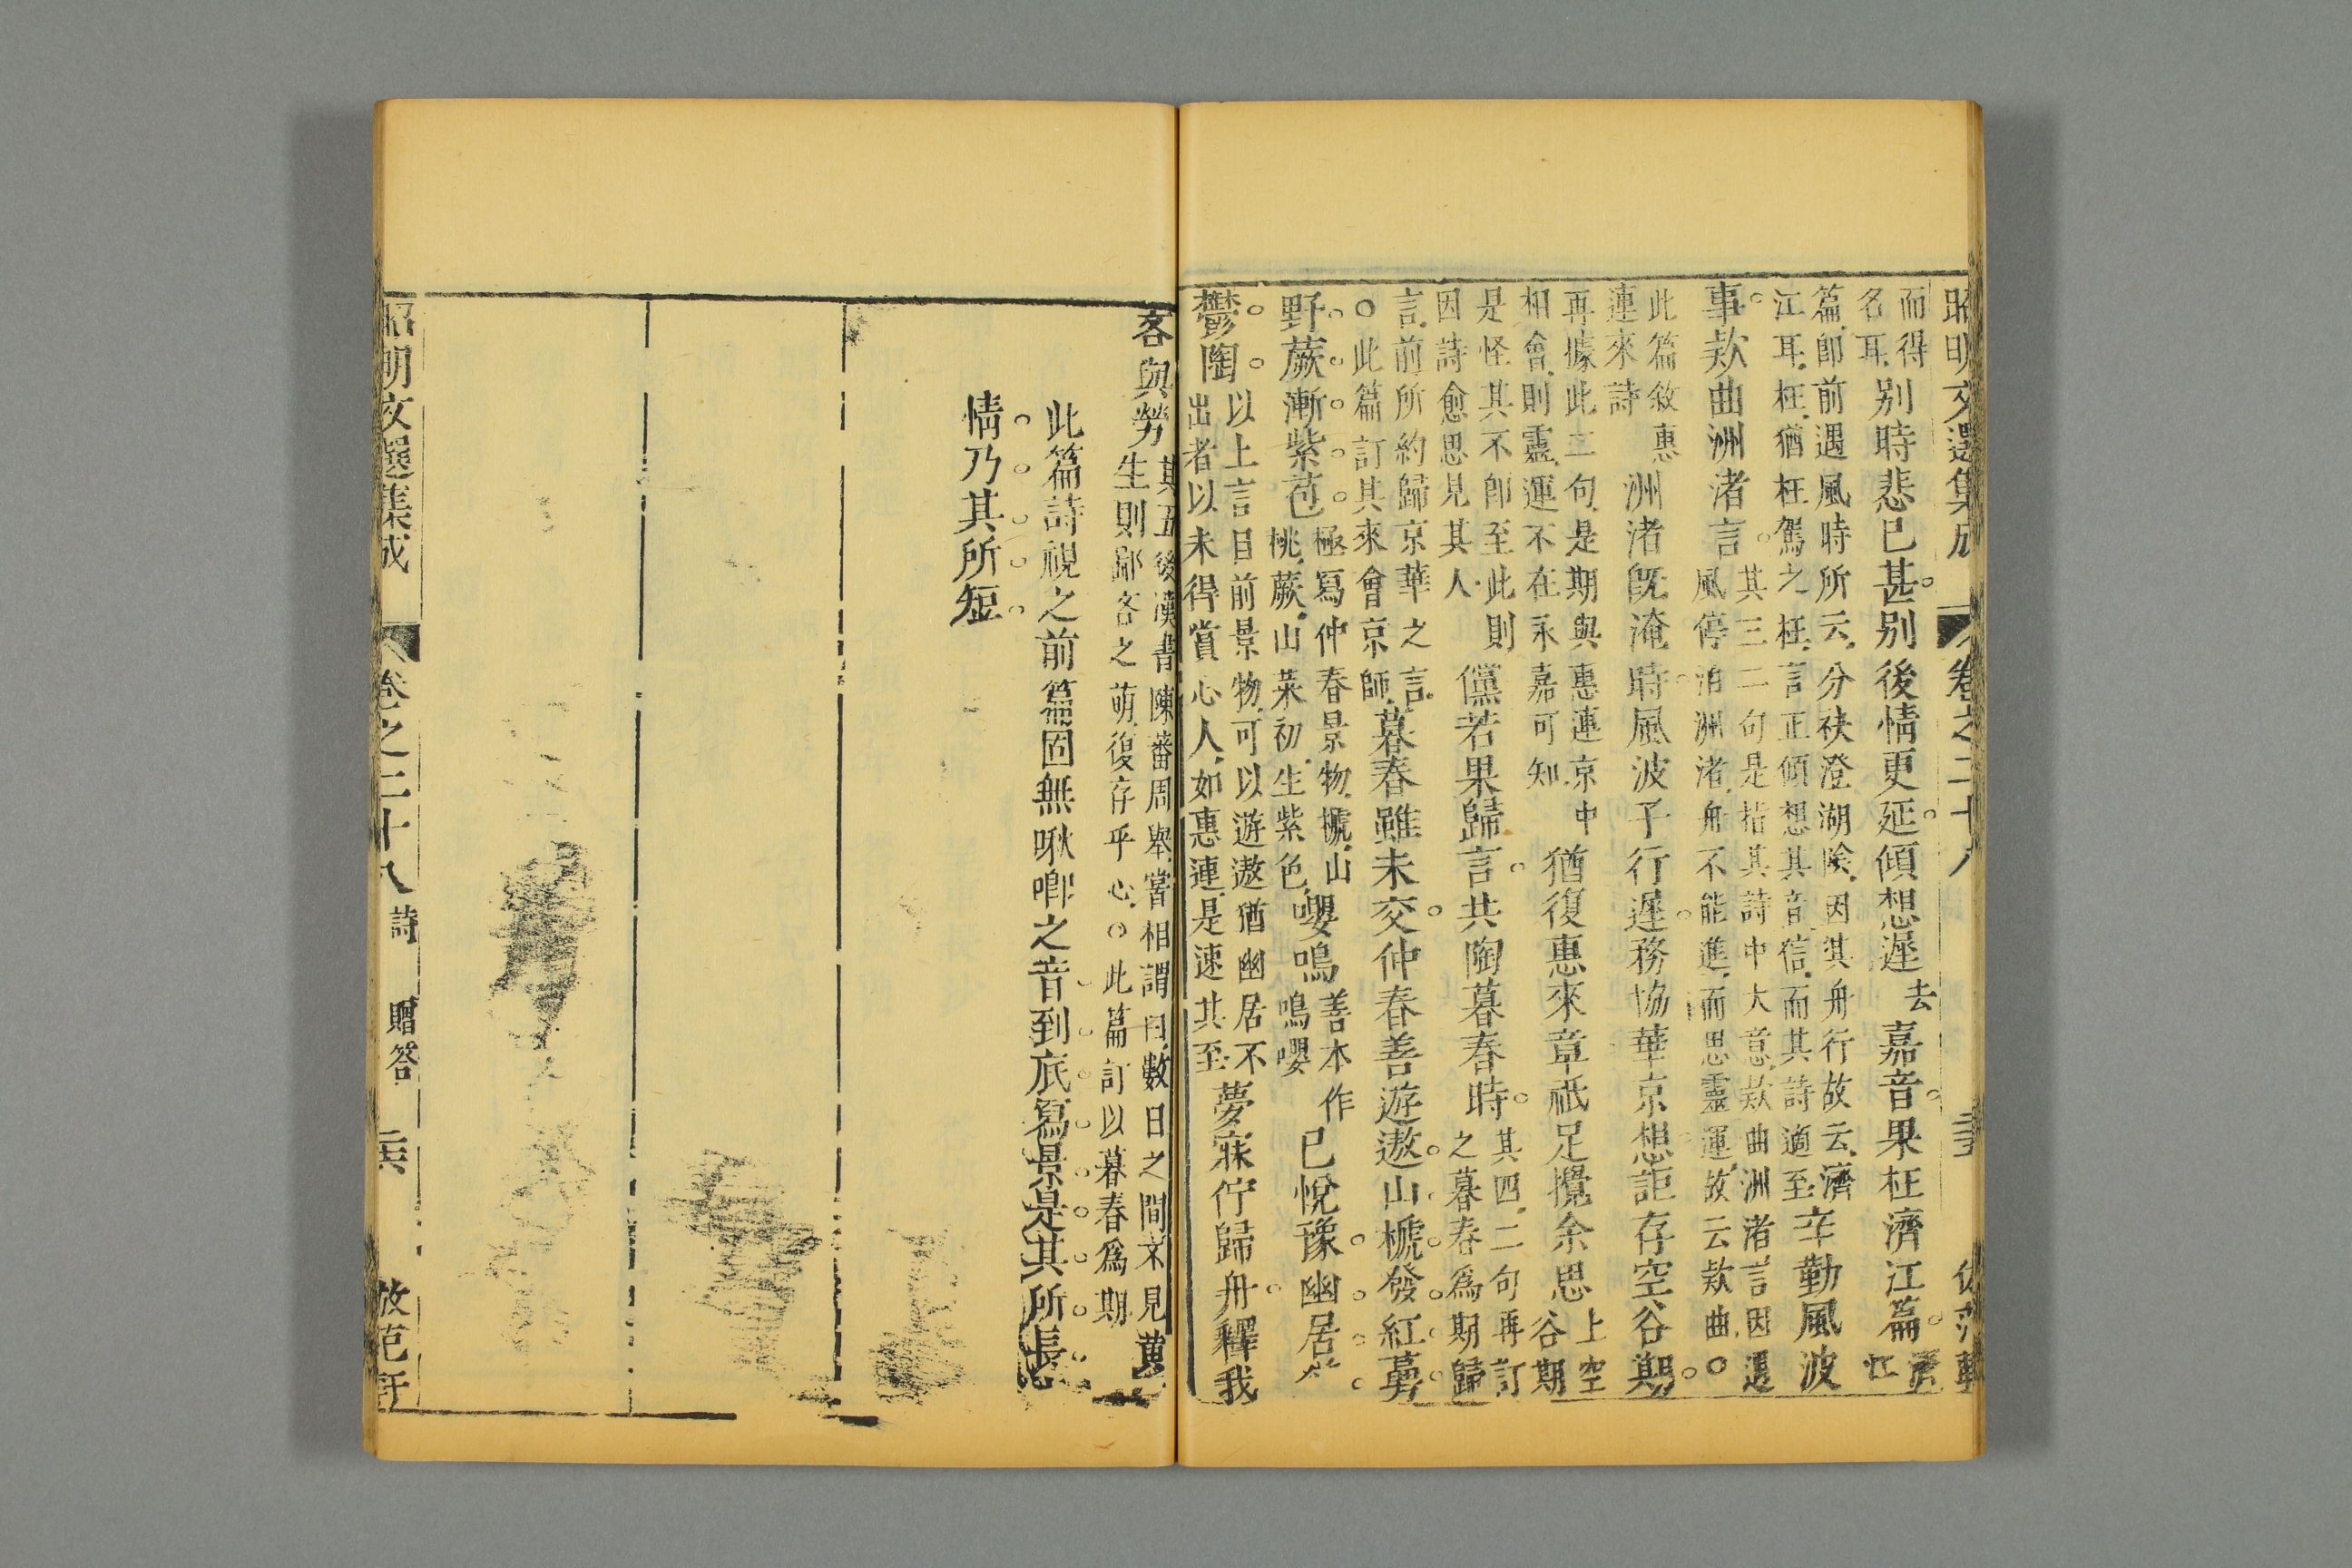 昭明文選集成 卷之二十八
而得
名耳別時悲已甚別後情更延傾想遲去嘉音果枉濟江篇濟江
篇卽前遇風時所云分袂澄湖陰因其舟行故云濟
江耳枉猶枉駕之枉言正傾想其音信而其詩適至辛勤風波
事款曲洲渚言其三二句是指其詩中大意款曲洲渚言因遇
風停泊洲渚舟不能進而思靈運故云款曲○
此篇敘惠
連來詩洲渚旣淹時風波子行遲務協華京想詎存空谷期
再據此二句是期與惠連京中
相會則靈運不在永嘉可知猶復惠來章祇足攪余思上空
谷期
是怪其不卽至此則
因詩愈思見其人儻若果歸言共陶暮春時其四二句再訂
之暮春爲期歸
言前所約歸京華之言
○此篇訂其來會京師暮春雖未交仲春善遊遨山桃發紅萼
野蕨漸紫苞極寫仲春景物榹山
桃蕨山菜初生紫色嚶鳴善本作
鳴嚶已悅豫幽居
鬱陶以上言目前景物可以遊遨猶幽居不
出者以未得賞心人如惠連是速其至夢寐佇歸舟釋我
吝與勞其五後漢書陳蕃周舉嘗相謂曰數日之間不見黃
生則鄙吝之萌復存乎心○此篇訂以暮春爲期
此篇詩視之前篇固無啾唧之音到底寫景是其所長
情乃其所短
昭明文選集成 卷之二十八 詩 贈答 倣范軒